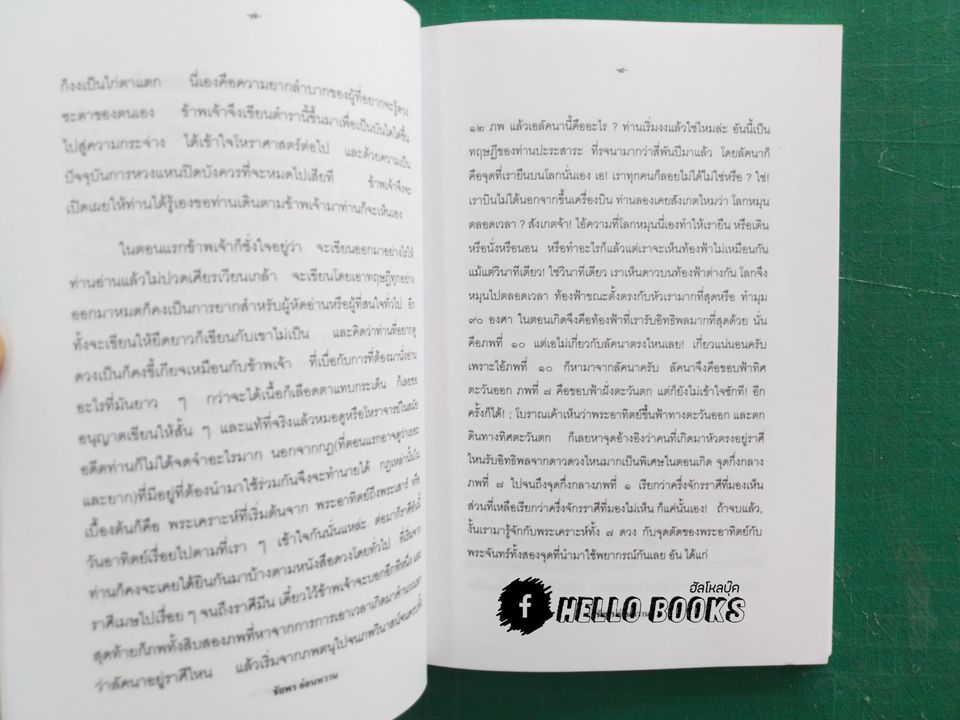 -๗-
ก็งงเป็นไก่ตาแตก นี่เองคือความยากลำบากของผู้ที่อยากจะรู้ดวง
ชะตาของตนเอง ข้าพเจ้าจึงเขียนตำรานี้ขึ้นมาเพื่อเป็นบันไดไต่ขึ้น
ไปสู่ความกระจ่าง ได้เข้าใจโหราศาสตร์ต่อไป และด้วยความเป็น
ปัจจุบันการหวงแหนปิดบังควรที่จะหมดไปเสียที ข้าพเจ้าจึงจะ
เปิดเผยให้ท่านได้รู้เองขอท่านเดินตามข้าพเจ้ามาท่านก็จะเห็นเอง
ในตอนแรกข้าพเจ้าก็ชั่งใจอยู่ว่า จะเขียนออกมาอย่างไรให้
ท่านอ่านแล้วไม่ปวดเศียรเวียนเกล้า จะเขียนโดยเอาทฤษฎีทุกอย่าง
ออกมาหมดก็คงเป็นการยากสำหรับผู้หัดอ่านหรือผู้ที่สนใจทั่วไป อีก
ทั้งจะเขียนให้ยืดยาวก็เขียนกับเขาไม่เป็น และคิดว่าท่านที่อยากดู
ดวงเป็นก็คงขี้เกียจเหมือนกับข้าพเจ้า ที่เบื่อกับการที่ต้องมานั่งอ่าน
อะไรที่มันยาว ๆ กว่าจะได้เนื้อก็เลือดตาแทบกระเด็น ก็เลยขอ
อนุญาตเขียนให้สั้น ๆ และแท้ที่จริงแล้วหมอดูหรือโหราจารย์ในสมัย
อดีตท่านก็ไม่ได้จดจำอะไรมาก นอกจากกฎ(ที่ตอนแรกอาจดูว่าเยอะ
และยาก)ที่มีอยู่ที่ต้องนำมาใช้ร่วมกันจึงจะทำนายได้ กฎเหล่านั้นใน
เบื้องต้นก็คือ พระเคราะห์ที่เริ่มต้นจาก พระอาทิตย์ถึงพระเสาร์ หรือ
วันอาทิตย์เรื่อยไปตามที่เรา ๆ เข้าใจกันนั่นแหละ ต่อมาก็ราศีอันนี้
ท่านก็คงจะเคยได้ยินกันมาบ้างตามหนังสือดวงโดยทั่วไป ที่เริ่มจาก
ราศีเมษไปเรื่อย ๆ จนถึงราศีมีน เดี๋ยวไว้ข้าพเจ้าจะบอกอีกทีหนึ่ง และ
สุดท้ายก็ภพทั้งสิบสองภพที่หาจากการการเอาเวลาเกิดมาคำนวณหา
ว่าลัคนาอยู่ราศีไหน แล้วเริ่มจากภพตนุไปจนภพวินาสน์จนครบทั้ง
ชัยพร อ่อนหวาน
-๘-
๑๒ ภพ แล้วเอลัคนานี้คืออะไร ? ท่านเริ่มงงแล้วใช่ไหมล่ะ อันนี้เป็น
ทฤษฎีของท่านปะระสาระ ที่รจนามากว่าสี่พันปีมาแล้ว โดยลัคนาก็
คือจุดที่เรายืนบนโลกนั่นเอง เอ! เราทุกคนก็ลอยไม่ได้ไม่ใช่หรือ ? ใช่!
เราบินไม่ได้นอกจากขึ้นเครื่องบิน ท่านลองเคยสังเกตไหมว่า โลกหมุน
ตลอดเวลา ? สังเกตจ้า! ไอ้ความที่โลกหมุนนี่เองทำให้เรายืน หรือเดิน
หรือนั่งหรือนอน หรือทำอะไรก็แล้วแต่เราจะเห็นท้องฟ้าไม่เหมือนกัน
แม้แต่วินาทีเดียว! ใช่วินาทีเดียว เราเห็นดาวบนท้องฟ้าต่างกัน โลกจึง
หมุนไปตลอดเวลา ท้องฟ้าขณะตั้งตรงกับหัวเรามากที่สุดหรือ ทำมุม
๙๐ องศา ในตอนเกิดจึงคือท้องฟ้าที่เรารับอิทธิพลมากที่สุดด้วย นั่น
คือภพที่ ๑๐ แต่เอไม่เกี่ยวกับลัคนาตรงไหนเลย! เกี่ยวแน่นอนครับ
เพราะไอ้ภพที่ ๑๐ ก็หามาจากลัคนาครับ ลัคนาจึงคือขอบฟ้าทิศ
ตะวันออก ภพที่ ๗ คือขอบฟ้าฝั่งตะวันตก แต่ก็ยังไม่เข้าใจซักที! อีก
ครั้งก็ได้! ; โบราณเค้าเห็นว่าพระอาทิตย์ขึ้นฟ้าทางตะวันออก และตก
ดินทางทิศตะวันตก ก็เลยหาจุดอ้างอิงว่าคนที่เกิดมาหัวตรงอยู่ราศี
ไหนรับอิทธิพลจากดาวดวงไหนมากเป็นพิเศษในตอนเกิด จุดกึ่งกลาง
ภพที่ ๗ ไปจนถึงจุดกึ่งกลางภพที่ ๑ เรียกว่าครึ่งจักรราศีที่มองเห็น
ส่วนที่เหลือเรียกว่าครึ่งจักรราศีที่มองไม่เห็น ก็แค่นั้นเอง! ถ้าจบแล้ว,
งั้นเรามารู้จักกับพระเคราะห์ทั้ง ๗ ดวง กับจุดตัดของพระอาทิตย์กับ
พระจันทร์ทั้งสองจุดที่นำมาใช้พยากรณ์กันเลย อัน ได้แก่
ฮัลโหลบุ๊ค
f HELLO BOOKS